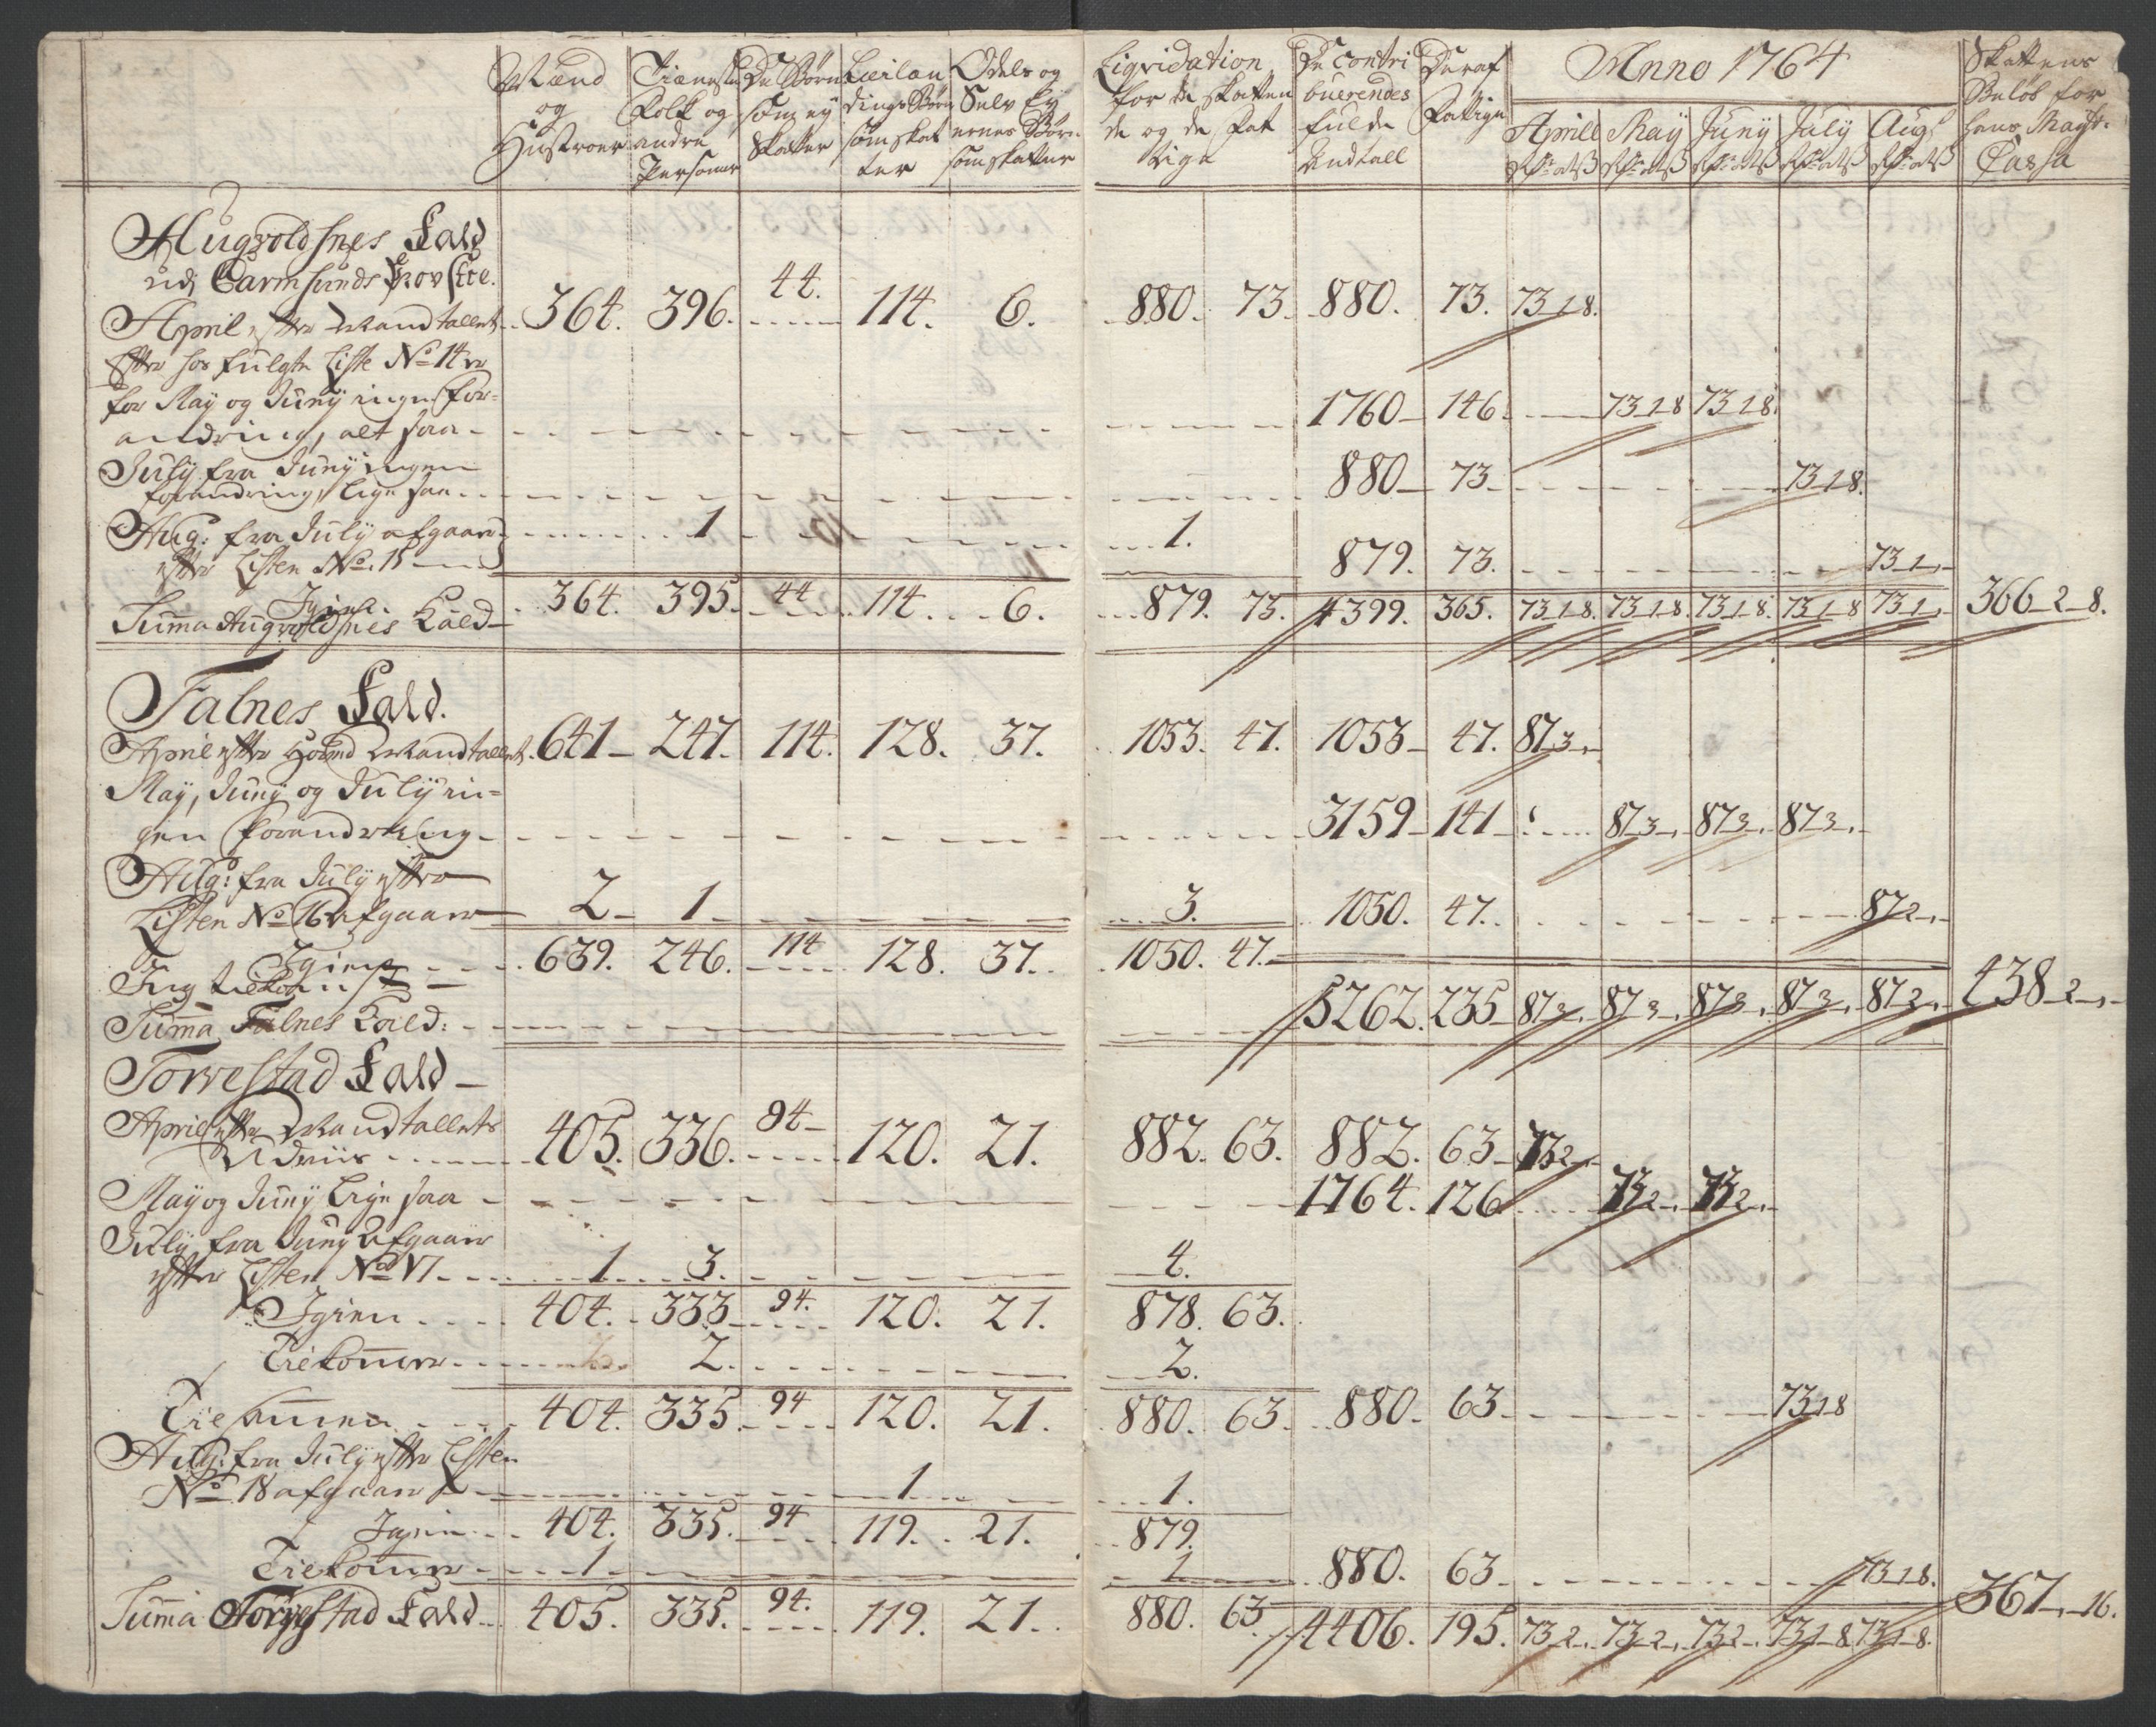 Mænd og Hustroer | Tieneste Folk og andre Personer | De Børn som ey Skatter | Leilændings Børn som skatter | Odels og Selv Ey ernes Børn som skatter | Liqvidation for de skattende og de fattige | De contribuerendes fulde Andtall | Deraf Fattige | Anno 1764 | Skattens Beløb for hans Mayst. Cassa
Aprill | May | Juny | July | Augs
Augvoldsnes Kald
udj Carmsunds Provstie.
April efter Mandtallet | 364. | 396. | 44. | 114. | 6. | 880. | 73 | 880. | 73. | 73 1 8.
efter hosfulgte Liste No 14
for May og Juny ingen for=
andring, alt saa | 1760 | 146. | 73 1 8 | 73 1 8.
July fra Juny ingen
forandring, lige saa | 880 | 73. | 73 1 8.
Aug: fra July afgaaer | 1 | 1.
efter Listen No. 15 | 879. | 73. | 73 1 „
Igien | 364. | 395. | 44 | 114 | 6. | 879. | 73.
Summa Augvoldsnes Kald | 4399. | 365. | 73 1 8. | 73 1 8. | 73 1 8. | 73 1 8 | 73 1 „ | 366 2 8.
Falnes Kald.
April efter Mandtallet | 641 | 247. | 114. | 128. | 37. | 1053. | 47. | 1053 | 47. | 87 3 „
May, Juny og July in=
gen forandring | 3159 | 141 | 87 3 „ | 87 3 „ | 87 3 „
Aug: fra July efter
Listen No 16 afgaaer | 2 | 1 | 3. | 1050. | 47. | 87 2 „
Igien | 639. | 246. | 114 | 128. | 37. | 1050. | 47.
Summa Falnes Kald: | 5262. | 235 | 87 3 „ | 87 3 „ | 87 3 „ | 87 3 „ | 87 2 „ | 438 2 „
Torvestad Kald
April efter Mandtallets
Udviis | 405. | 336. | 94 | 120. | 21. | 882. | 63. | 882. | 63 | 73 2 „
May og Juny lige saa | 1764. | 126 | 73 2 „ | 73 2 „
July fra Juny afgaaer
efter Listen No 17 | 1 | 3. | 4.
Igien | 404. | 333 | 94. | 120. | 21. | 878. | 63.
Tiekommer | 2. | 2.
Tiesammen | 404. | 335. | 94 | 120. | 21. | 880. | 63. | 880. | 63 | 73 1 8
Aug: fra July efter Listen
No 18 afgaaer | 1 | 1.
Igien | 404. | 335. | 94 | 119. | 21. | 879.
Tiekommer | 1 | 1 | 880. | 63 | 73 1 8.
Summa Torvestad Kald | 405. | 335. | 94. | 119. | 21. | 880. | 63 | 4406. | 195. | 73 2 „ | 73 2 „ | 73 2 „ | 73 1 8 | 73 1 8. | 367 „ 16.